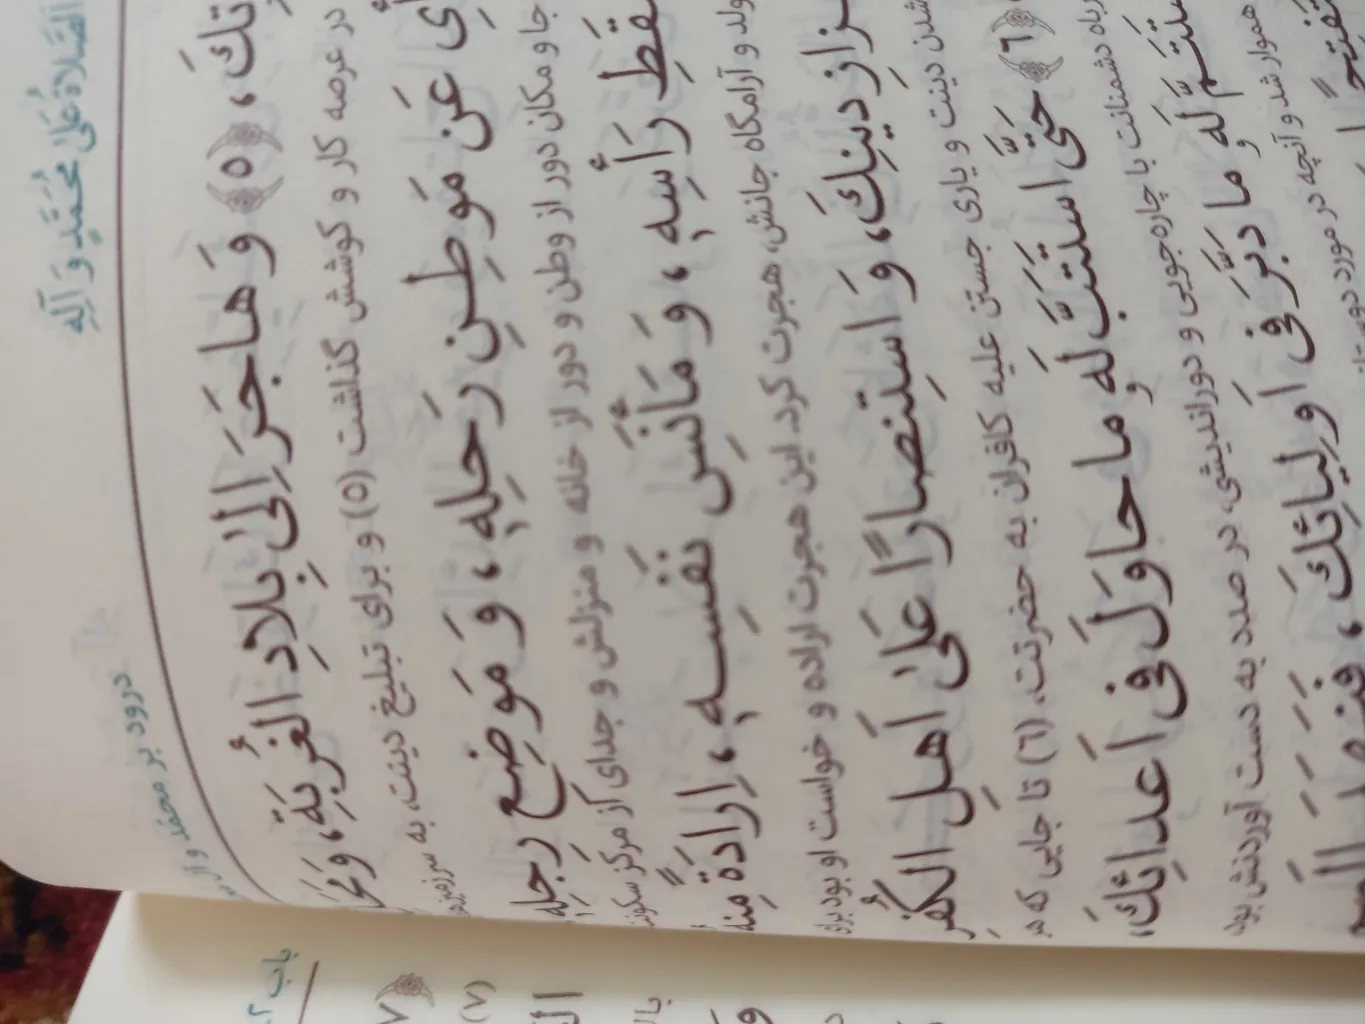 الصَّلاةُ عَلىٰ مُحَمَّدٍ وَ آلِهِ
درود بر محمّد و آل
تِكَ، ﴿٥﴾ وَ هاجَرَ اِلىٰ بِلادِ الْغُرْبَةِ، وَ
در عرصه کار و کوشش گذاشت (٥) و برای تبلیغ دینت، به سرزمین
عَنْ مَوْطِنِ رَحْلِهِ، وَ مَوْضِعِ رِجْلِهِ
جا و مکان دور از وطن و دور از خانه و منزلش و جدای از مرکز سکونت
مَسْقَطِ رَأْسِهِ، وَ مَأْنَسِ نَفْسِهِ، اِرادَةً مِنْهُ
ولد و آرامگاه جانش، هجرت کرد. این هجرت اراده و خواست او بود برای
دینِكَ، وَ اسْتِنْصارًا عَلىٰ اَهْلِ الْكُفْرِ
شدن دینت و یاری جستن علیه کافران به حضرتت، (٦) تا جایی که هر
﴿٦﴾ حَتَّى اسْتَتَبَّ لَهُ ما حاوَلَ فى اَعْدائِكَ،
دشمنانت با چاره‌جویی و دوراندیشی در صدد به دست آوردنش بود
لَهُ ما دَبَّرَ فى اَوْلِيائِكَ، فَنَهَدَ
هموار شد و آنچه در مورد
باب ٢
﴿٧
(٧)